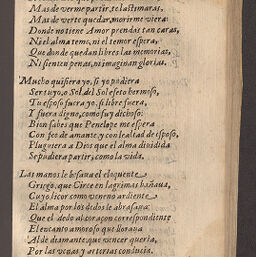 Mas de verme partir, te lastimaras,
Mas de verte quedar, morirme viera
Donde no tiene Amor prendas tan caras,
Ni el alma teme, ni el temor espera,
Que donde quedan libres las memorias,
Ni sienten penas, ni imaginan glorias.
Mucho quisiera yo, si yo pudiera
Ser tuyo, o Sol del Sol eseto hermoso,
Tu esposo fuera yo, si libre fuera,
Y fuera digno, como fuy dichoso:
Bien sabes que Penelope me espera
Con fee de amante, y con lealtad de esposo,
Pluguiera a Dios que el alma diuidida
Se pudiera partir, como la vida.
Las manos le besaua el eloquente
Griego, que Circe en lagrimas bañaua,
Cuyo licor como veneno ardiente
El alma por los dedos le abrasaua
Que el dedo al coraçon correspondiente
El encanto amoroso que lloraua
Al de diamante, que vencer queria,
Por las venas y arterias conducia.